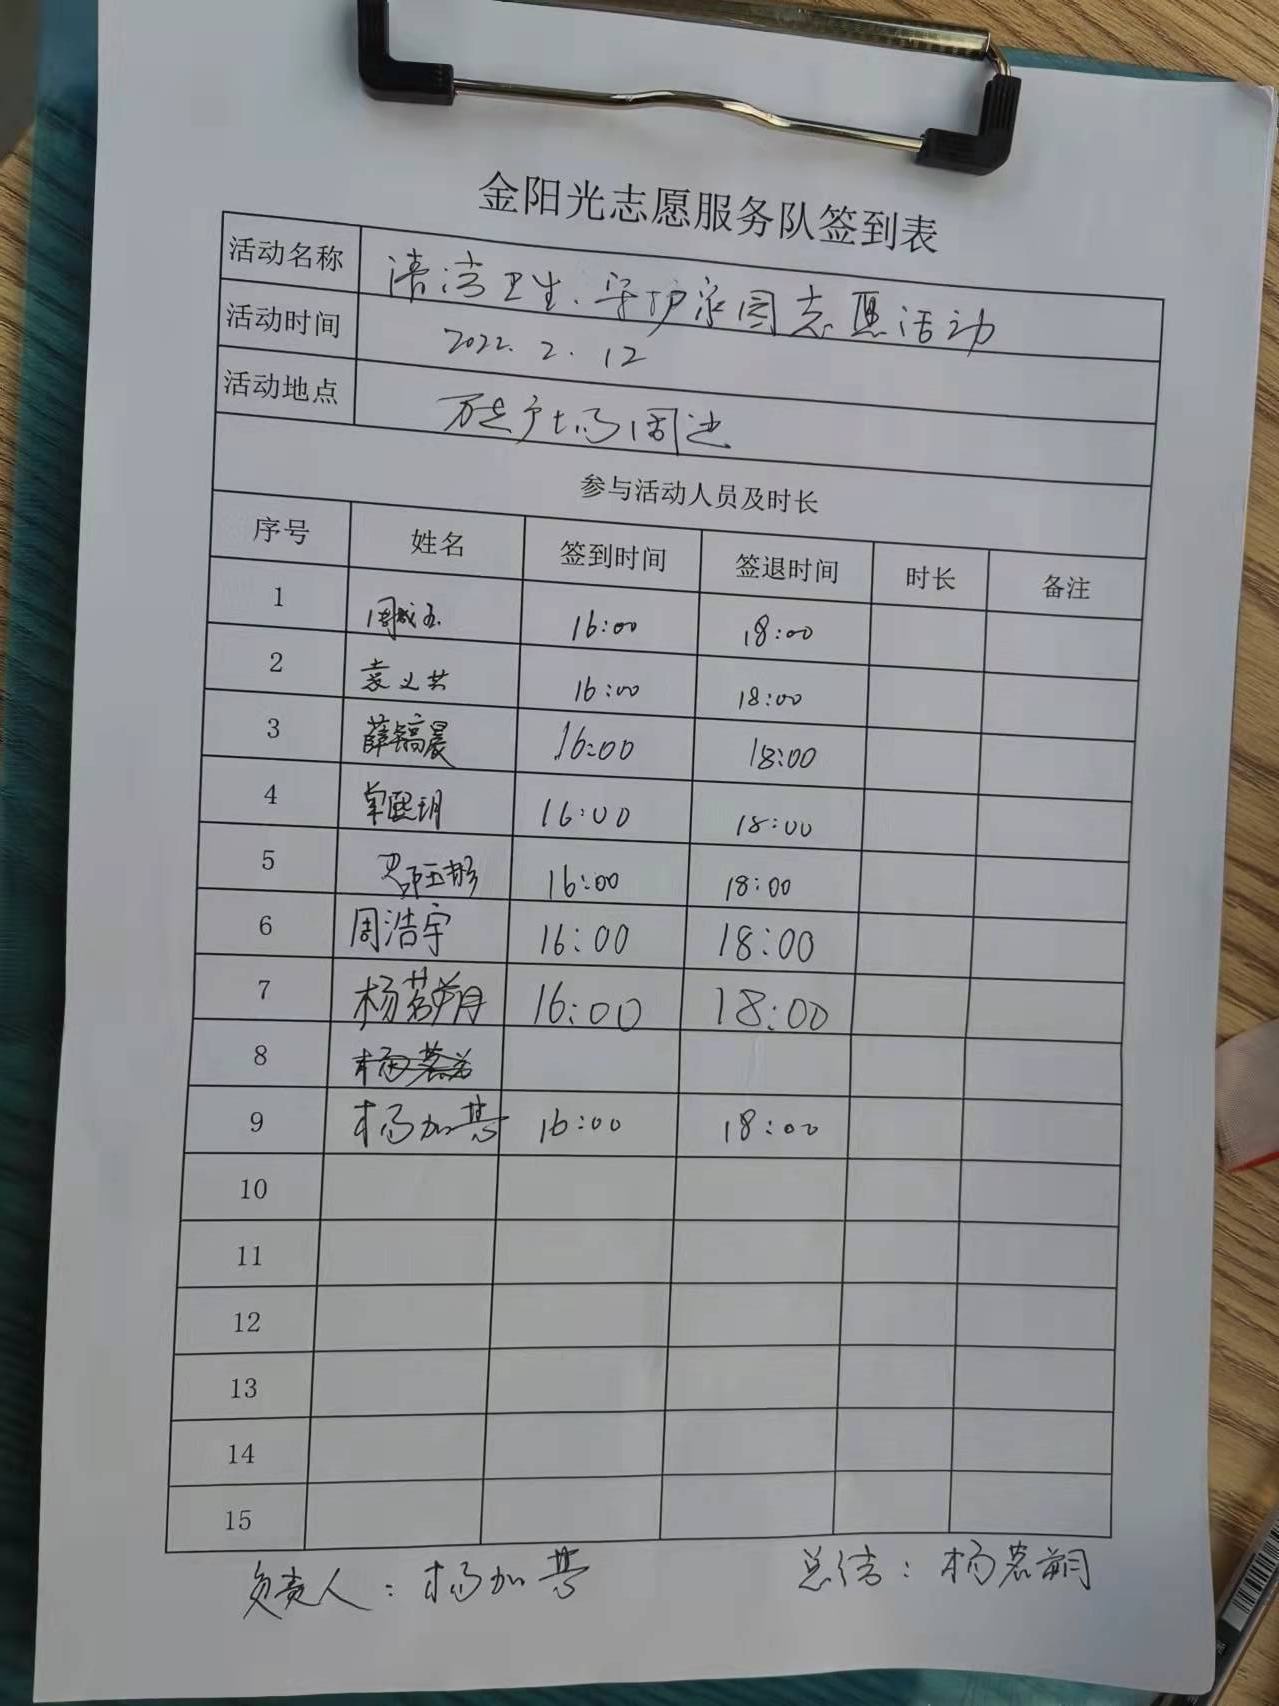 金阳光志愿服务队签到表
活动名称 清洁卫生、守护家园志愿活动
活动时间 2022.2.12
活动地点 万达广场周边
参与活动人员及时长
序号 姓名 签到时间 签退时间 时长 备注
1 周成五 16:00 18:00
2 袁义共 16:00 18:00
3 薛镐晨 16:00 18:00
4 单熙玥 16:00 18:00
5 16:00 18:00
6 周浩宇 16:00 18:00
7 杨茗朔 16:00 18:00
8
9 杨加慧 16:00 18:00
10
11
12
13
14
15
负责人：杨加慧 总结：杨茗朔